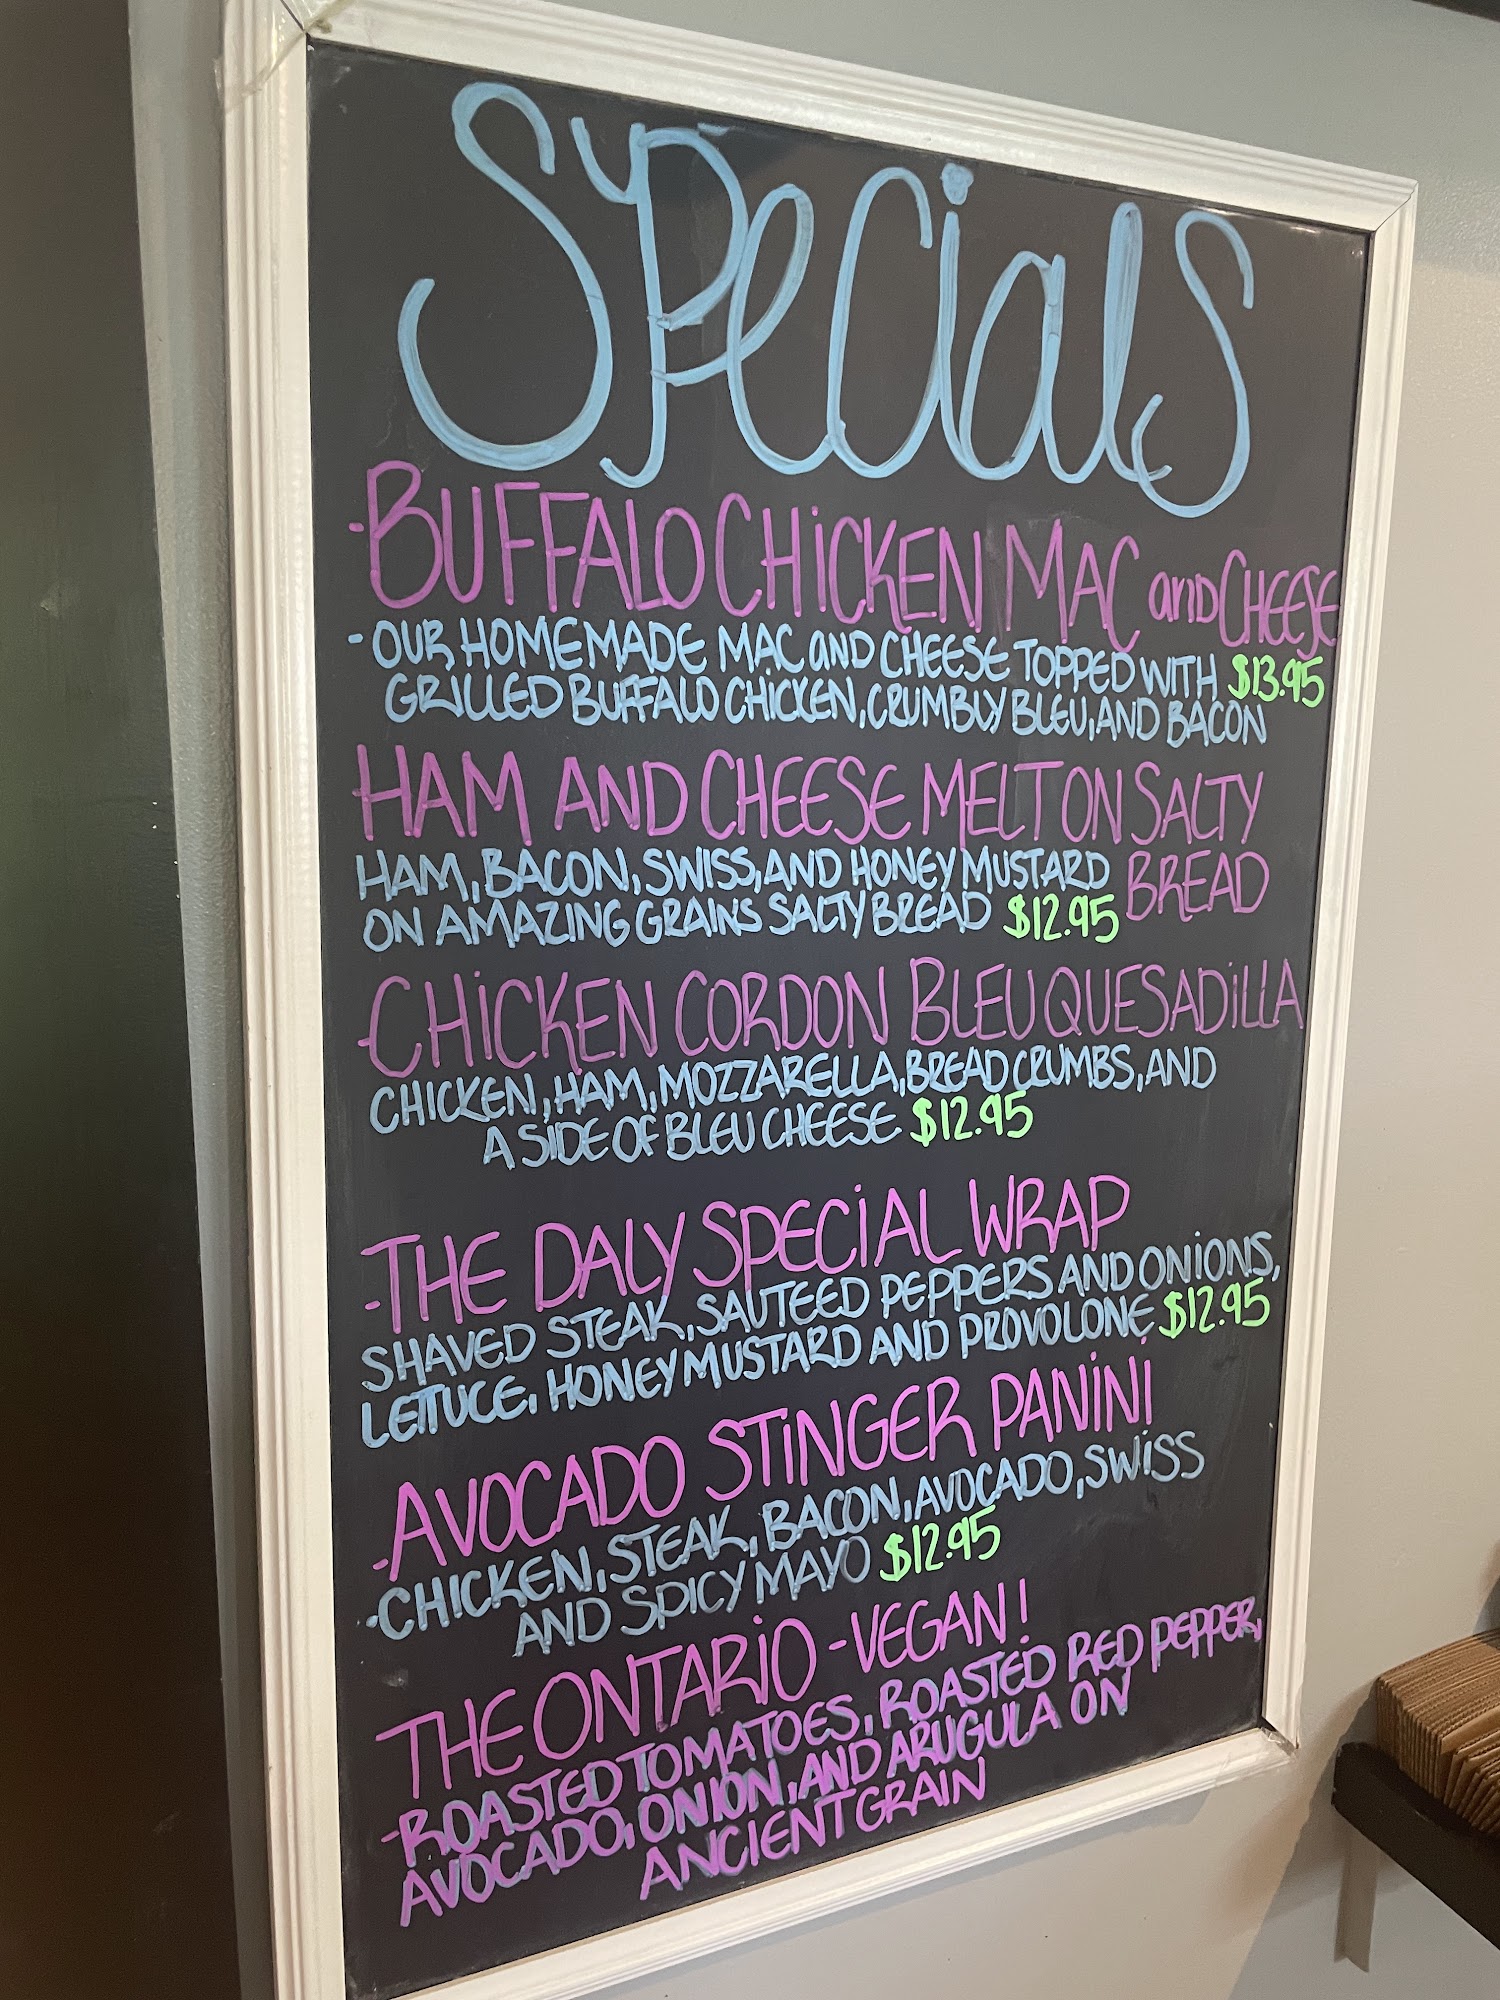 Specials
-BUFFALO CHiCKEN MAC and CHEESE
-OUR HOMEMADE MAC and CHEESE TOPPED WITH $13.95
GRILLED BUFFALO CHICKEN, CRUMBLY BLEU, AND BACON
HAM AND CHEESE MELT ON SALTY
BREAD
HAM, BACON, SWISS, AND HONEY MUSTARD
ON AMAZING GRAINS SALTY BREAD $12.95
-CHiCKEN CORDON BLEU QUESADiLLA
CHICKEN, HAM, MOZZARELLA, BREAD CRUMBS, AND
A SIDE OF BLEU CHEESE $12.95
-THE DALY SPECiAL WRAP
SHAVED STEAK, SAUTEED PEPPERS AND ONiONS,
LETTUCE, HONEY MUSTARD AND PROVOLONE $12.95
-AVOCADO STiNGER PANiNi
-CHICKEN, STEAK, BACON, AVOCADO, SWiSS
AND SPICY MAYO $12.95
THE ONTARiO - VEGAN!
-ROASTED TOMATOES, ROASTED RED PEPPER,
AVOCADO, ONION, AND ARUGULA ON
ANCIENT GRAIN